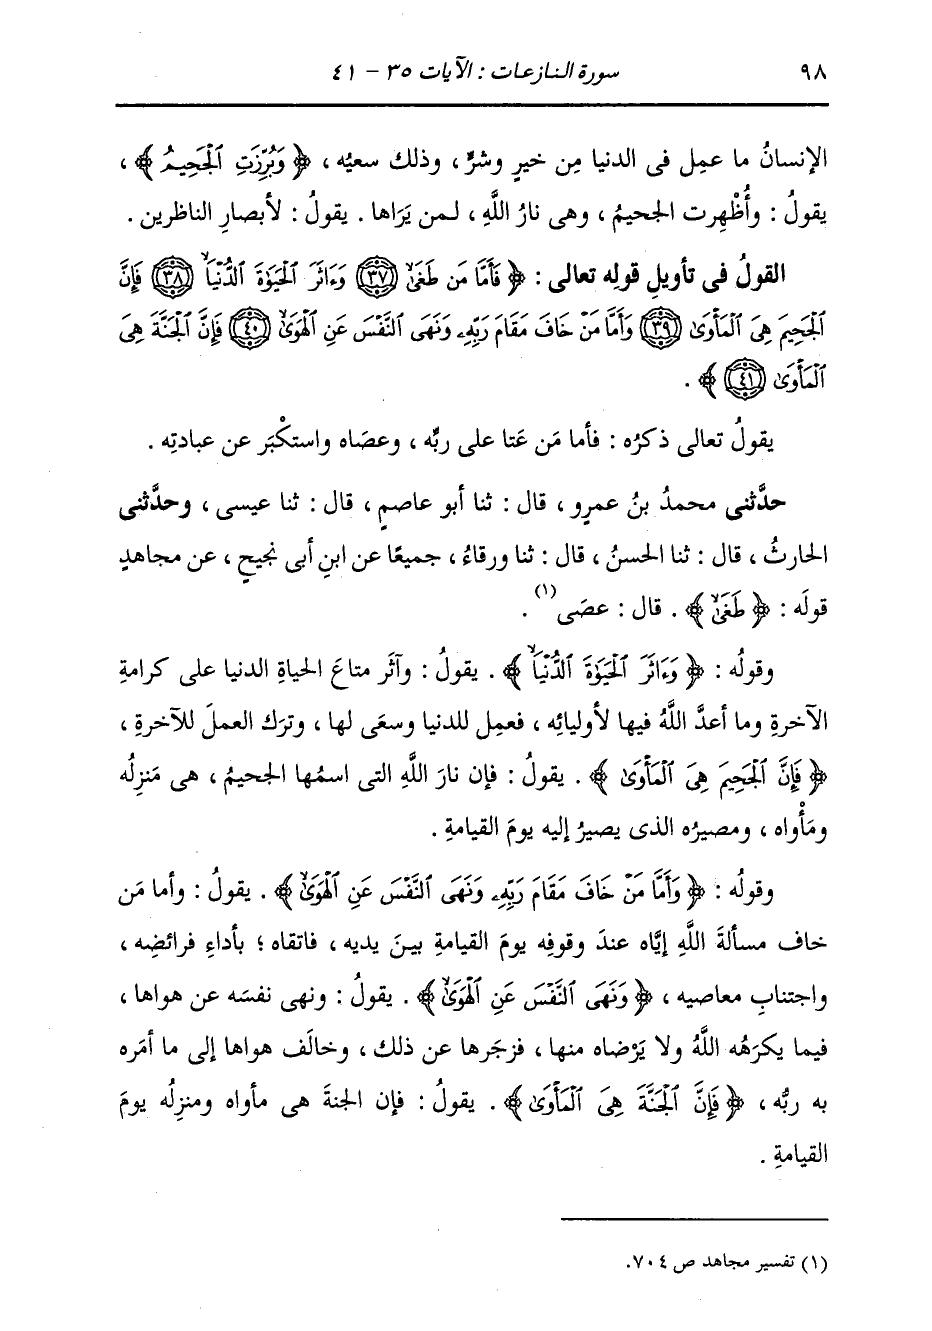 ٩٨ سورة النازعات : الآيات ٣٥ - ٤١
الإنسانُ ما عمِل فى الدنيا مِن خيرٍ وشرٍّ ، وذلك سعيُه ، ﴿ وَبُرِّزَتِ ٱلْجَحِيمُ ﴾ ،
يقولُ : وأُظْهِرت الجحيمُ ، وهى نارُ اللَّهِ ، لمن يَرَاها . يقولُ : لأبصارِ الناظرين .
القولُ فى تأويلِ قوله تعالى : ﴿ فَأَمَّا مَن طَغَىٰ ﴿٣٧﴾ وَءَاثَرَ ٱلْحَيَوٰةَ ٱلدُّنْيَا ﴿٣٨﴾ فَإِنَّ
ٱلْجَحِيمَ هِىَ ٱلْمَأْوَىٰ ﴿٣٩﴾ وَأَمَّا مَنْ خَافَ مَقَامَ رَبِّهِۦ وَنَهَى ٱلنَّفْسَ عَنِ ٱلْهَوَىٰ ﴿٤٠﴾ فَإِنَّ ٱلْجَنَّةَ هِىَ
ٱلْمَأْوَىٰ ﴿٤١﴾ ﴾ .
يقولُ تعالى ذكرُه : فأما مَن عَتا على ربِّه ، وعصَاه واستكْبَر عن عبادتِه .
حدَّثنى محمدُ بنُ عمرٍو ، قال : ثنا أبو عاصمٍ ، قال : ثنا عيسى ، وحدَّثنى
الحارثُ ، قال : ثنا الحسنُ ، قال : ثنا ورقاءُ ، جميعًا عن ابنِ أبى نجيحٍ ، عن مجاهدٍ
قولَه : ﴿ طَغَىٰ ﴾ . قال : عصَى(١) .
وقولُه : ﴿ وَءَاثَرَ ٱلْحَيَوٰةَ ٱلدُّنْيَا ﴾ . يقولُ : وآثَر متاعَ الحياةِ الدنيا على كرامةِ
الآخرةِ وما أعدَّ اللَّهُ فيها لأوليائِه ، فعمِل للدنيا وسعَى لها ، وترَك العملَ للآخرةِ ،
﴿ فَإِنَّ ٱلْجَحِيمَ هِىَ ٱلْمَأْوَىٰ ﴾ . يقولُ : فإن نارَ اللهِ التى اسمُها الجحيمُ ، هى مَنزِلُه
ومَأْواه ، ومصيرُه الذى يصيرُ إليه يومَ القيامةِ .
وقولُه : ﴿ وَأَمَّا مَنْ خَافَ مَقَامَ رَبِّهِۦ وَنَهَى ٱلنَّفْسَ عَنِ ٱلْهَوَىٰ ﴾ . يقولُ : وأما مَن
خاف مسألةَ اللَّهِ إيَّاه عندَ وقوفِه يومَ القيامةِ بينَ يديه ، فاتقاه ؛ بأداءِ فرائضِه ،
واجتنابِ معاصيه ، ﴿ وَنَهَى ٱلنَّفْسَ عَنِ ٱلْهَوَىٰ ﴾ . يقولُ : ونهى نفسَه عن هواها ،
فيما يكرَهُه اللَّهُ ولا يَرْضاه منها ، فزجَرها عن ذلك ، وخالَف هواها إلى ما أمَره
به ربُّه ، ﴿ فَإِنَّ ٱلْجَنَّةَ هِىَ ٱلْمَأْوَىٰ ﴾ . يقولُ : فإن الجنةَ هى مأواه ومنزِلُه يومَ
القيامةِ .
(١) تفسير مجاهد ص ٧٠٤.